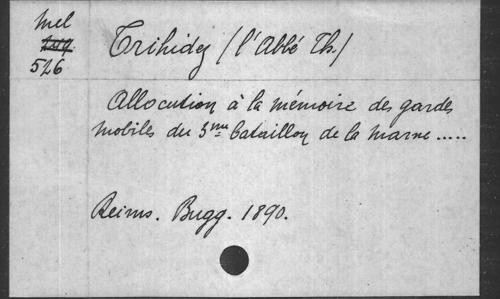 Mel
526
Trihidez (l'Abbé Th.)
Allocution à la mémoire des gardes
mobiles du 3me bataillon de la Marne.....
Reims. Bugg. 1890.